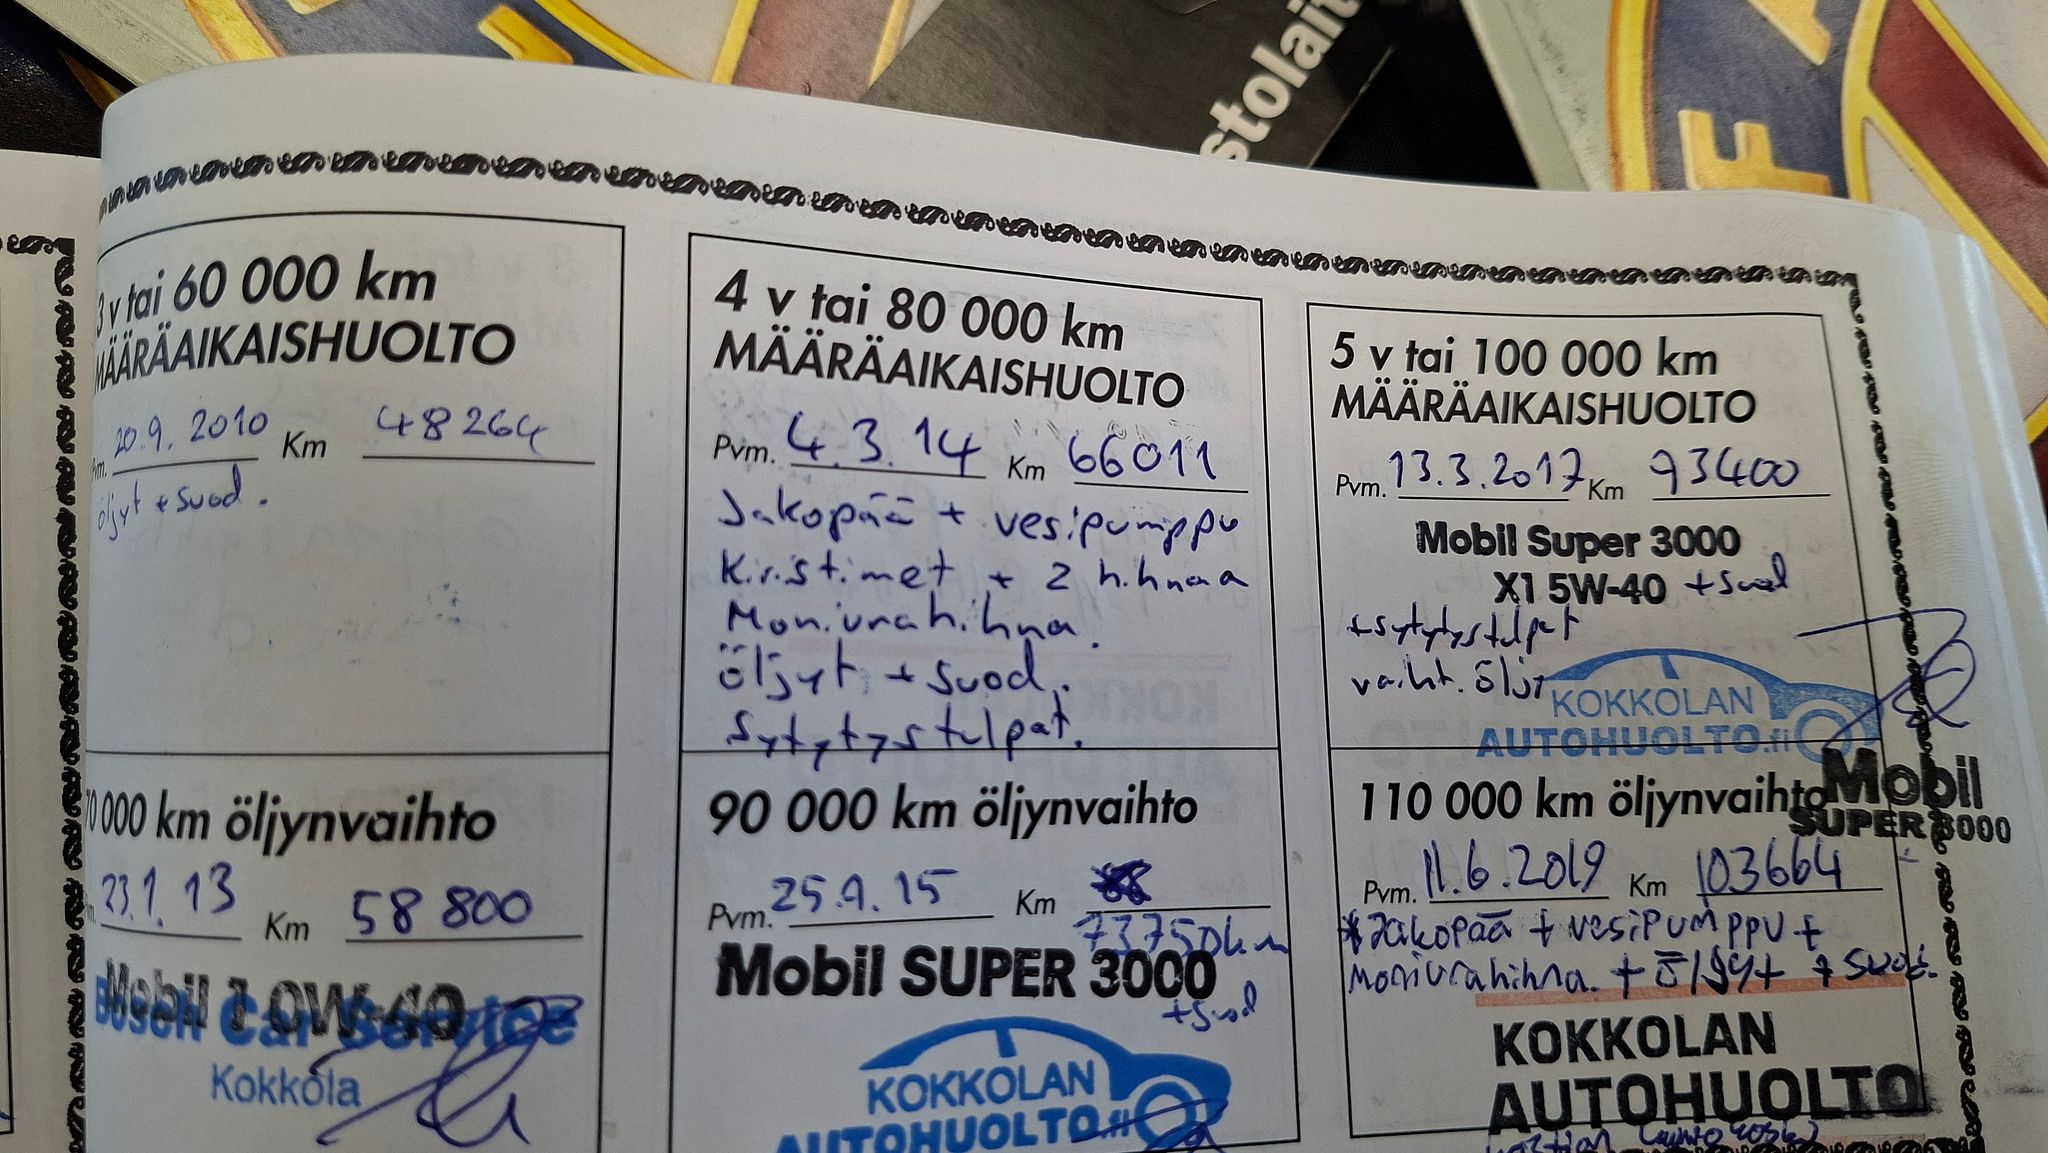 stolait
F
3 v tai 60 000 km
MÄÄRÄAIKAISHUOLTO
Pvm. 20.9. 2010 Km 48264
öljyt + suod.
4 v tai 80 000 km
MÄÄRÄAIKAISHUOLTO
Pvm. 4.3.14 Km 66011
Jakopää + vesipumppu
Kiristimet + 2 hihnaa
Moniurahihna.
öljyt + suod.
Sytytystulpat.
5 v tai 100 000 km
MÄÄRÄAIKAISHUOLTO
Pvm. 13.3.2017 Km 93400
Mobil Super 3000
X1 5W-40 + suod
+ sytytystulpat
vaiht. öljy
KOKKOLAN
AUTOHUOLTO.fi
70 000 km öljynvaihto
23.1.13 Km 58 800
Mobil 1 0W-40
Bosch Car Service
Kokkola
90 000 km öljynvaihto
Pvm. 25.9.15 Km
73750km
Mobil SUPER 3000
+ suod
KOKKOLAN
AUTOHUOLTO.fi
110 000 km öljynvaihto
Mobil
SUPER 3000
Pvm. 11.6.2019 Km 103664
*Jakopää + vesipumppu +
moniurahihna. + öljyt + suod.
KOKKOLAN
AUTOHUOLTO